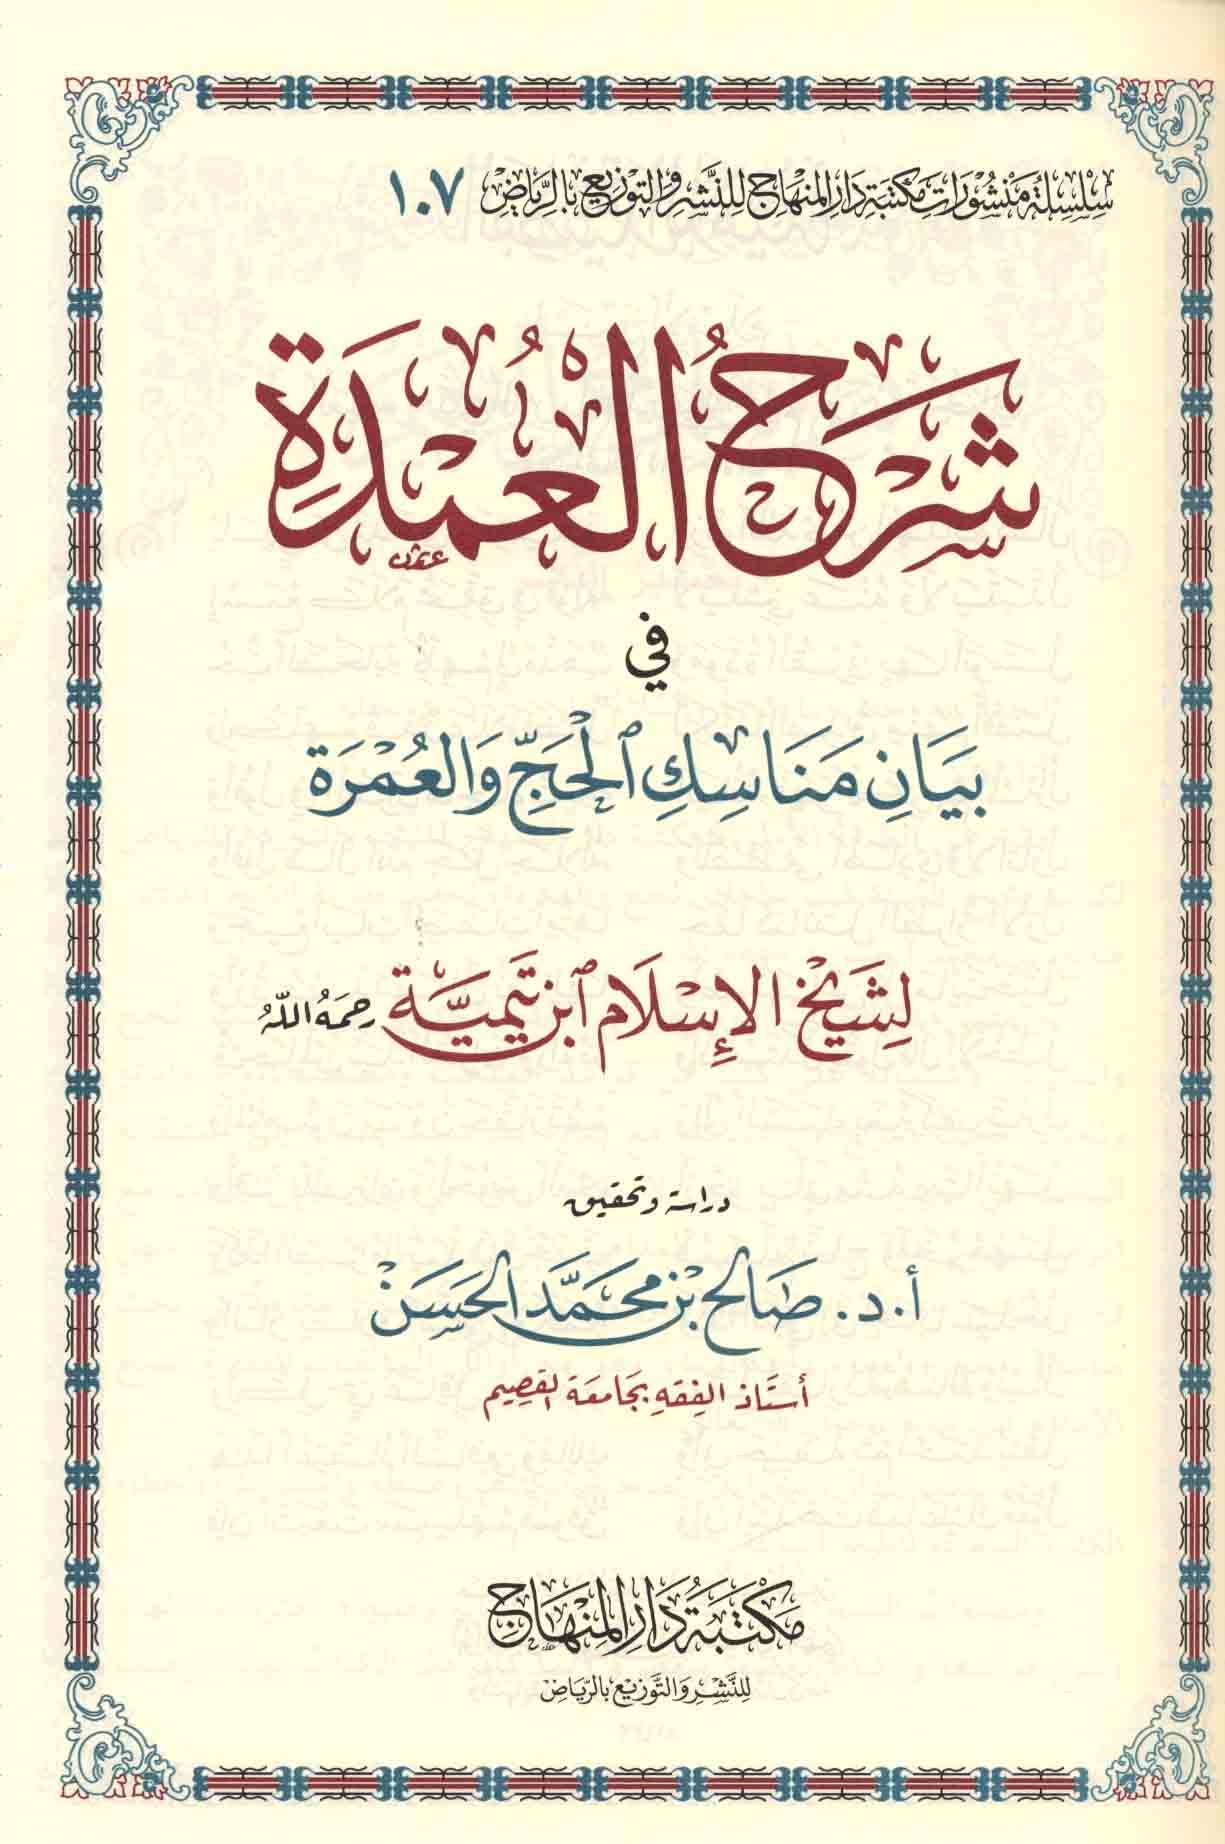 سِلْسِلَة مَنْشُورَات مَكتبَة دَار المِنهَاج لِلنَّشر وَالتوزيع بالرِّيَاض ١٠٧
شَرْحُ الْعُمْدَةِ
في
بَيَانِ مَنَاسِكِ ٱلْحَجِّ وَالْعُمْرَة
لِشَيْخِ الإِسْلَام ٱبْن تَيْمِيَّة رحمَهُ اللّٰهُ
دراسة وتحقيق
أ. د. صَالح بْن محمَّد الحَسَن
أستَاذ الفِقهِ بجَامعَة القصِيم
مَكتَبَة دَار المِنْهَاج
لِلنَّشْر وَالتَّوزيع بالرِّيَاض